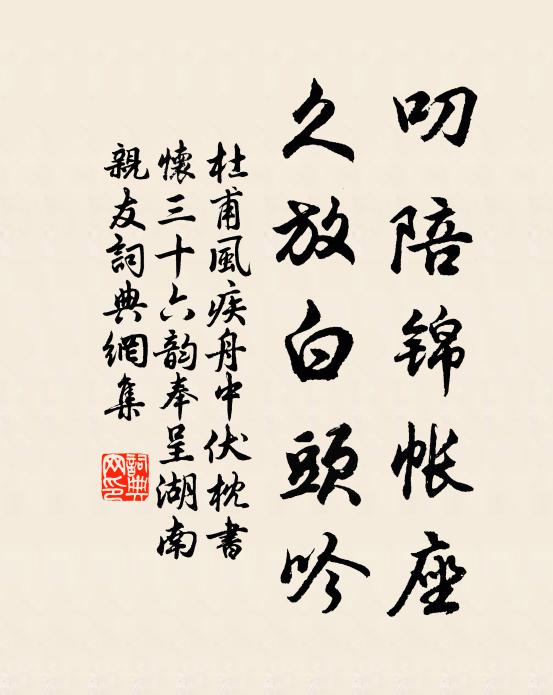 叨陪锦帐座
久放白頭吟
杜甫風疾舟中伏枕書
懷三十六韵奉呈湖南
親友詞典網集
詞典
网印